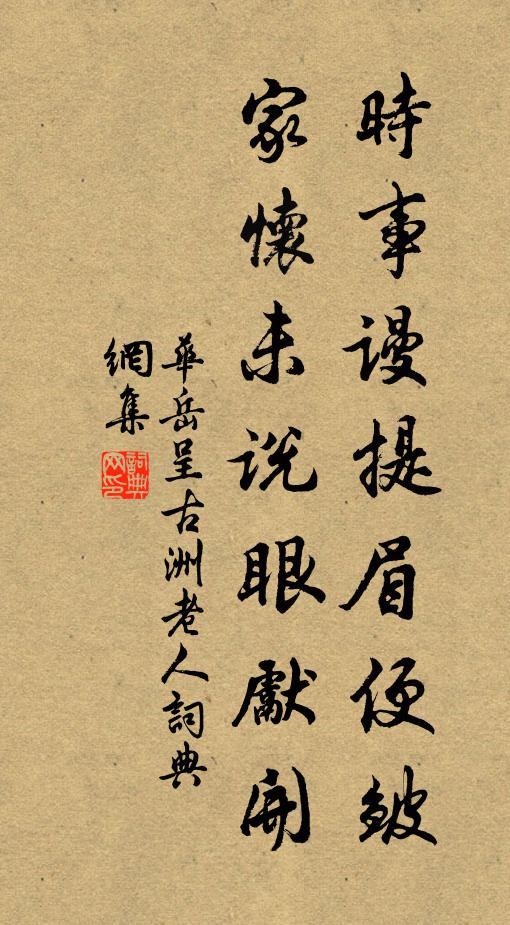 時事謾提眉便皺
家懷未説眼獻開
華岳呈古洲老人詞典
網集
詞典
网印